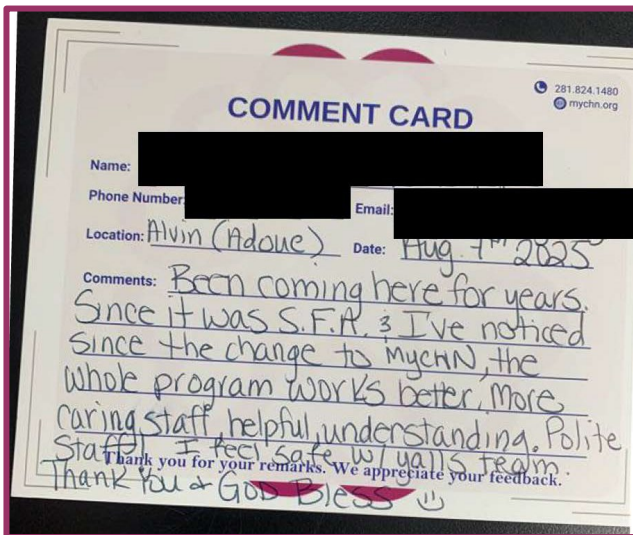 281.824.1480
mychn.org
COMMENT CARD
Name:
Phone Number:
Email:
Location: Alvin (Adoue) Date: Aug. 7th 2025
Comments: Been coming here for years.
Since it was S.F.A. & I've noticed
since the change to MYCHN, the
whole program works better. More
caring staff, helpful, understanding. Polite
Staff! I feel safe w/ yalls team.
Thank you for your remarks. We appreciate your feedback.
Thank You & GOD Bless